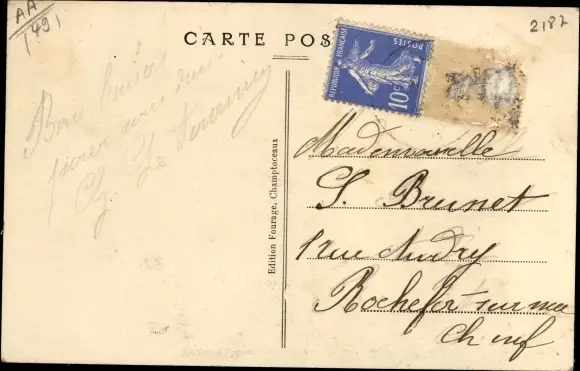 AA
1491
2187
CARTE POS
REPUBLIQUE FRANÇAISE
POSTES
10c
Bons baisers
pour vous deux
Edition Fourage, Champtoceaux
Mademoiselle
S. Brunet
rue Audry
Rochefort sur mer
Ch inf